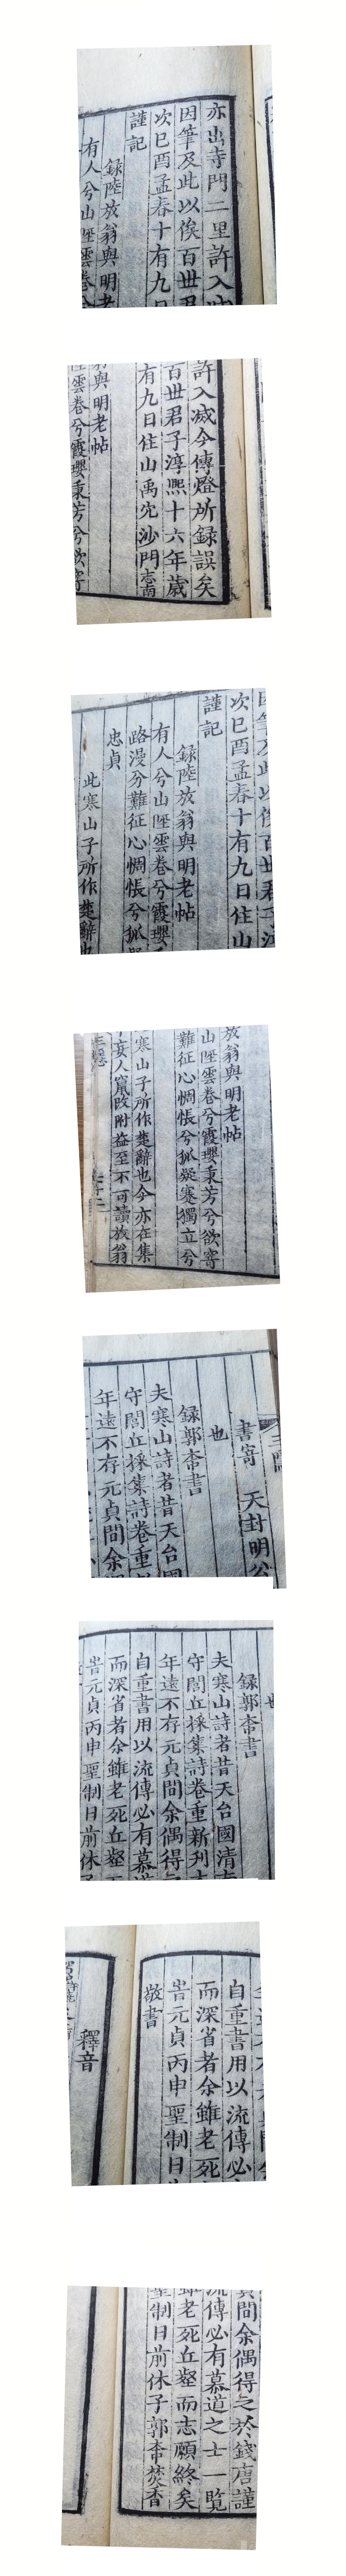 亦出寺門二里許入
因筆及此以俟百世君
次己酉孟春十有九日
謹記
録陸放翁與明老
有人兮山陘雲卷兮
許入滅今傳燈所録誤矣
百世君子淳熈十六年歲
有九日住山禹穴沙門志南
與明老帖
陘雲卷兮霞瓔秉芳兮欲寄
因筆及此以俟百世君子淳
次己酉孟春十有九日住山
謹記
録陸放翁與明老帖
有人兮山陘雲卷兮霞瓔
路漫兮難征心惆悵兮狐
忠貞
此寒山子所作楚辭也
放翁與明老帖
山陘雲卷兮霞瓔秉芳兮欲寄
難征心惆悵兮狐疑蹇獨立兮
寒山子所作楚辭也今亦在集
妄人竄改附益至不可讀放翁
三隱
書寄 天封明公
也
録郭夲書
夫寒山詩者昔天台國
守閭丘採集詩卷重
年遠不存元貞間余
也
録郭夲書
夫寒山詩者昔天台國清
守閭丘採集詩卷重新刊
年遠不存元貞間余偶得
自重書用以流傳必有慕道
而深省者余雖老死丘壑而
旹元貞丙申聖制日前休子
自重書用以流傳必
而深省者余雖老死
旹元貞丙申聖制日
敬書
釋音
貞間余偶得之於錢唐謹
流傳必有慕道之士一覽
雖老死丘壑而志願終矣
聖制日前休子郭夲中焚香